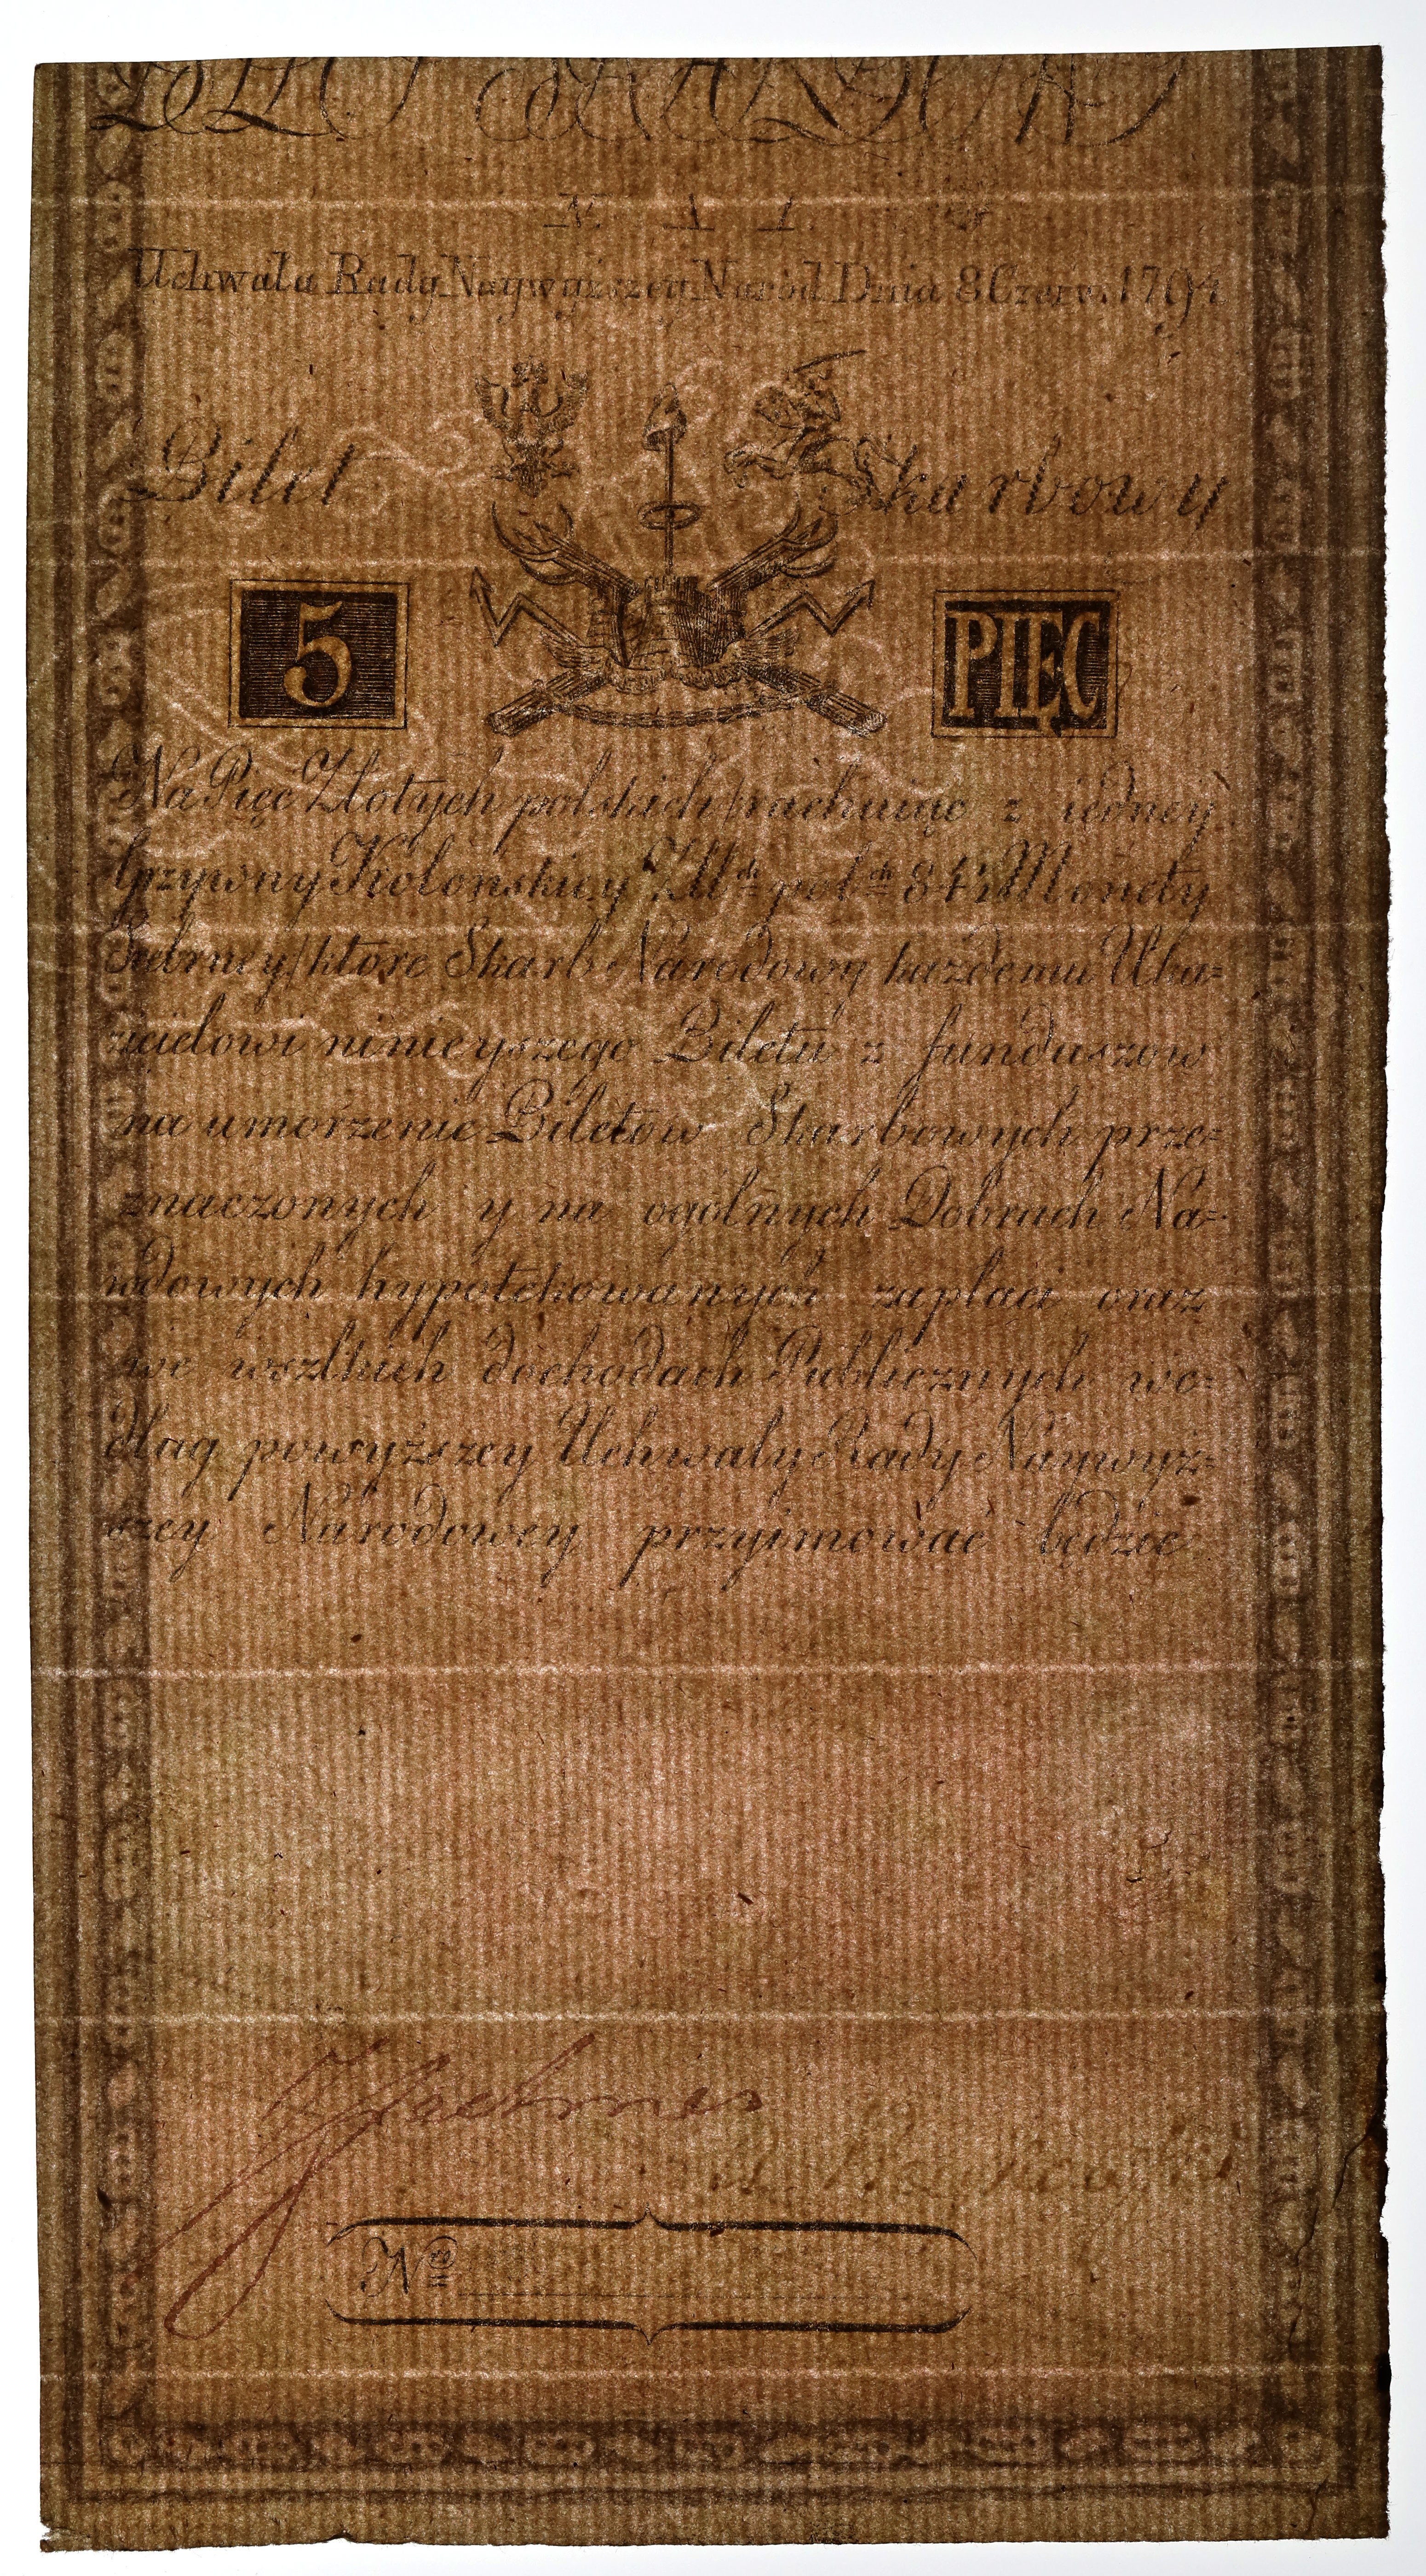 N. A 1.
Uchwała Rady Naywyższey Narod. Dnia 8 Czerw. 1794
Bilet Skarbowy
5 PIĘC
Na Pięc Złotych polskich /rachuiąc z iedney
Grzywny Kolońskiey Zł.ch pol.ch 84½ Monety
Srebrney/ ktore Skarb Narodowy każdemu Oka=
zicielowi ninieyszego Biletu z funduszow
na umorzenie Biletow Skarbowych prze=
znaczonych y na ogólnych Dobrach Na=
rodowych hypotekowanych zapłaci oraz
we wszlkich dochodach Publicznych we=
dług powyższey Uchwały Rady Naywyż=
szey Narodowey przyimować będzie
Nro